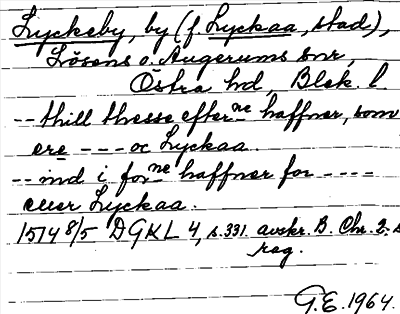 Lyckeby, by (f. Lyckaa, stad),
Lösens o. Augerums snr,
Östra hd, Blek. l.
-- thill thesse efterne haffner, som
ere --- oc Lyckaa.
-- ind i forne haffner for ----
euer Lyckaa.
1514 8/5 DGKL 4, s. 331. avskr. B. Chr. 2:s
reg.
G.E. 1964.